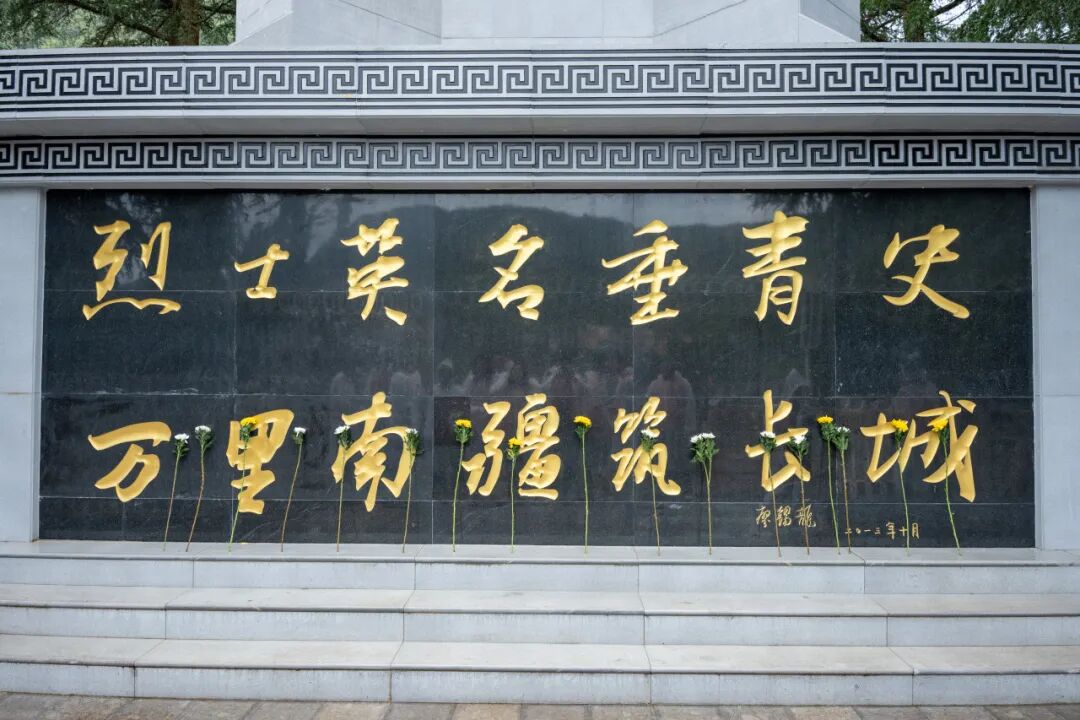 烈士英名垂青史
万里南疆筑长城
廖锡龙 二〇一三年十月